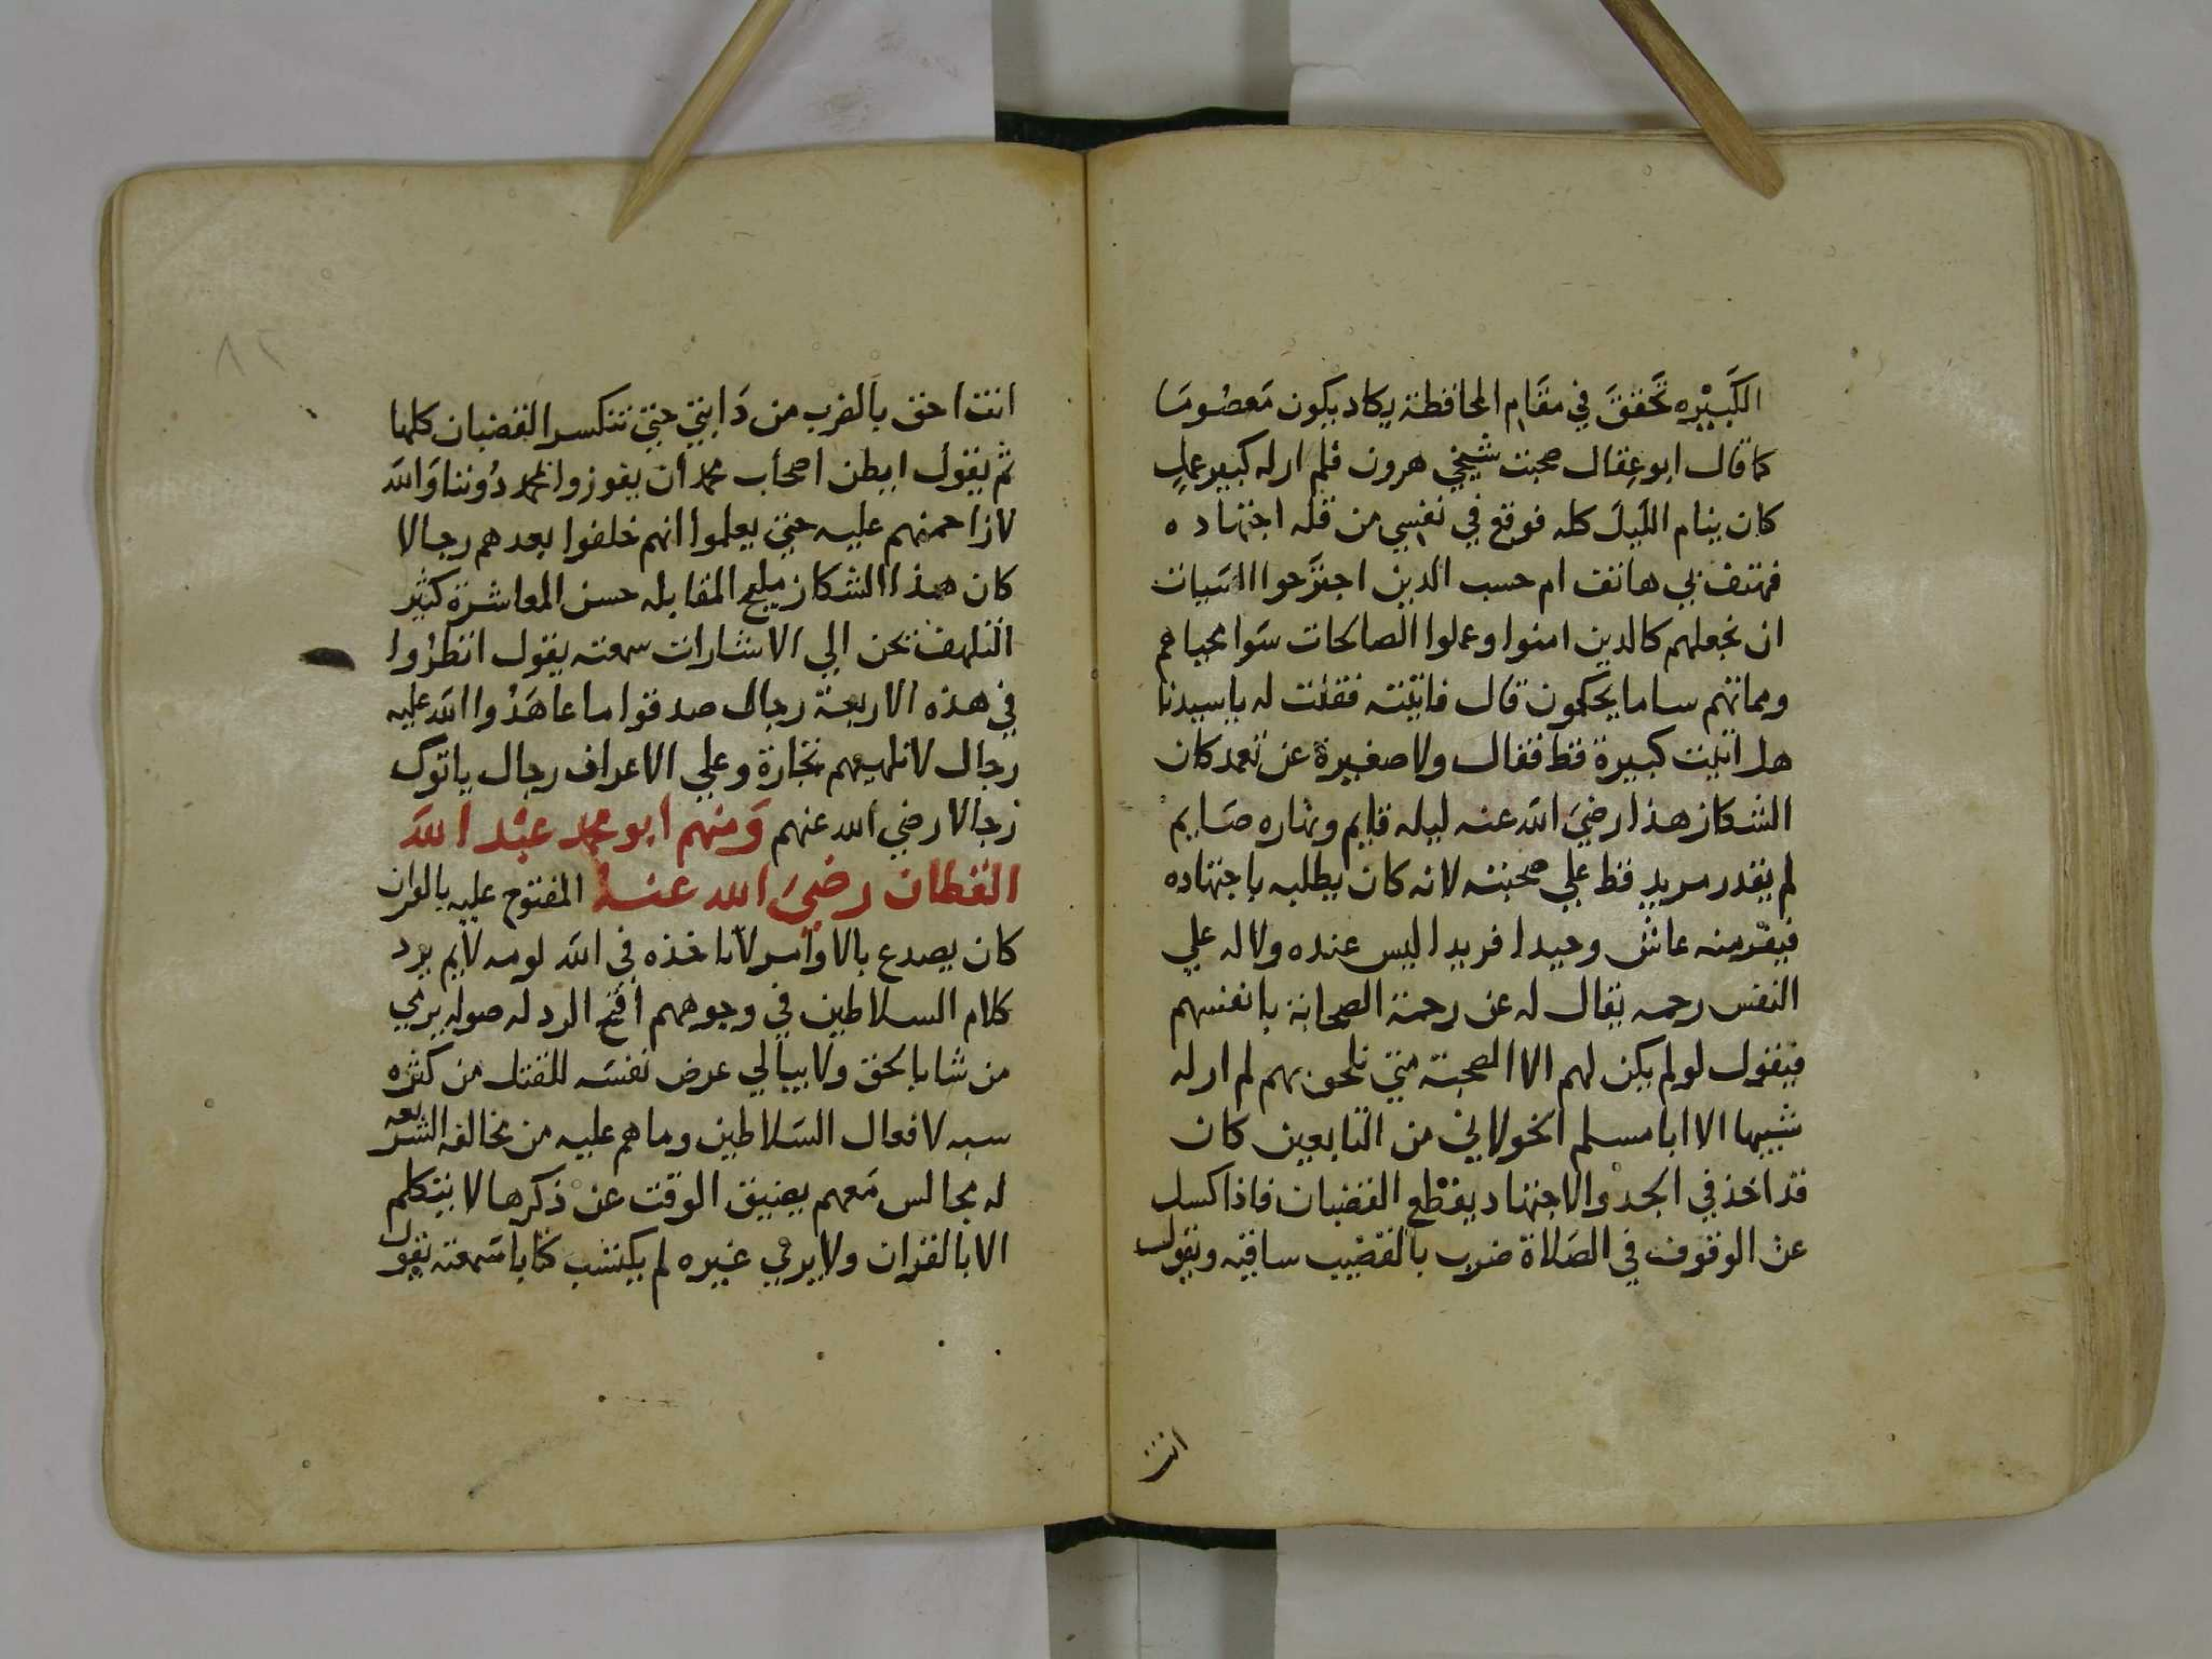 الكبيره تحقق في مقام المحافظة يكاد يكون معصوما
كما قال ابو عقال صحبت شيخي هرون فلم ار له كبير عمل
كان ينام الليل كله فوقع في نفسي من قلة اجتهاده
فهتف بي هاتف ام حسب الذين اجترحوا السيات
ان نجعلهم كالذين امنوا وعملوا الصالحات سوا محياهم
ومماتهم سا ما يحكمون قال فاتيته فقلت له يا سيدنا
هل اتيت كبيرة قط فقال ولا صغيرة عن تعمد كان
الشكاز هذا رضي الله عنه ليله قايم ونهاره صايم
لم يقدر مريد قط علي صحبته لانه كان يطلبه باجتهاده
فيفر منه عاش وحيدا فريدا ليس عنده ولا له علي
النفس رحمه يقال له عن رحمة الصحابة بانفسهم
فيقول لو لم يكن لهم الا الصحبة متي نلحق بهم لم ار له
شبيها الا ابا مسلم الخولاني من التابعين كان
قد اخذ في الجد والاجتهاد يقطع القضبان فاذا كسل
عن الوقوف في الصلاة ضرب بالقضيب ساقيه ويقول
انت
٨٢
انت احق بالضرب من دابتي حتي تتكسر القضبان كلها
ثم يقول ايظن اصحاب محمد ان يفوزوا بمحمد دوننا والله
لازاحمنهم عليه حتي يعلموا انهم خلفوا بعدهم رجالا
كان هذا الشكاز مليح المقابله حسن المعاشرة كثير
التلهف نحن الي الاشارات سمعته يقول انظروا
في هذه الاربعة رجال صدقوا ما عاهدوا الله عليه
رجال لا تلهيهم تجارة وعلي الاعراف رجال ياتوك
رجالا رضي الله عنهم ومنهم ابو محمد عبد الله
القطان رضي الله عنه المفتوح عليه بالقران
كان يصدع بالاوامر لا تاخذه في الله لومه لايم يرد
كلام السلاطين في وجوههم اقبح الرد له صوله يرمي
من شا بالحق ولا يبالي عرض نفسه للقتل من كثره
سبه لافعال السلاطين وما هم عليه من مخالفه الشريعه
له مجالس معهم يضيق الوقت عن ذكرها لا يتكلم
الا بالقران ولا يرمي غيره لم يكتسب كتابا سمعته يقول